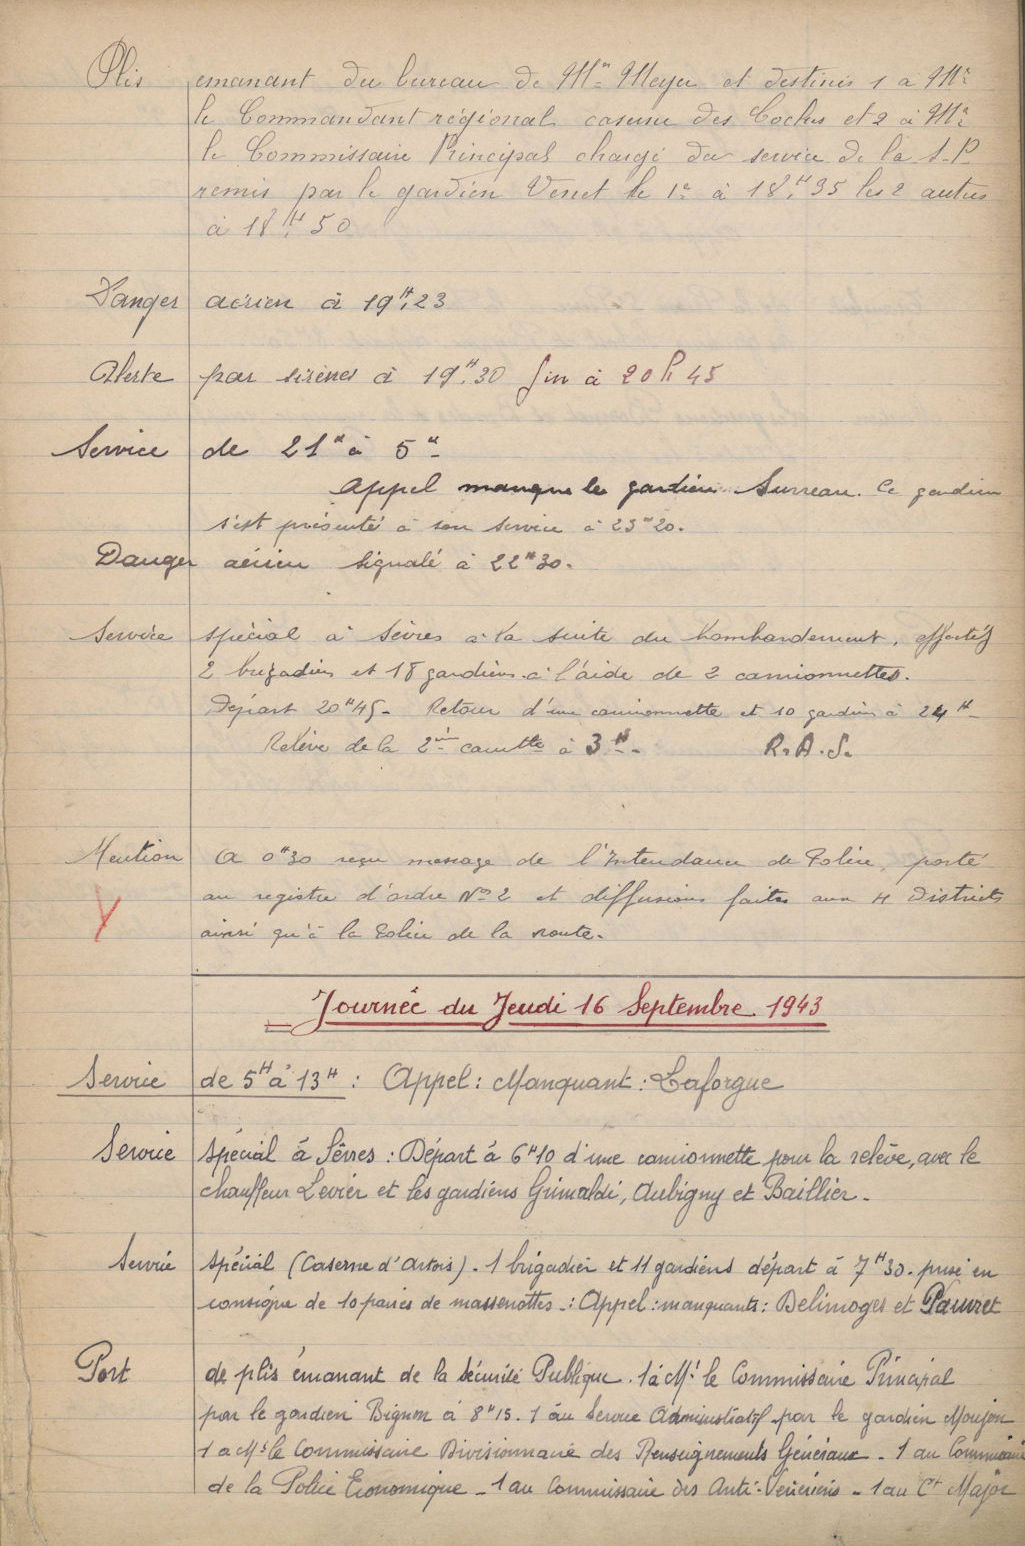 Plis émanant du bureau de Mr Meyer et destinés 1 à Mr
le Commandant régional caserne des Coches et 2 à Mr
le Commissaire Principal chargé du service de la S.P.
remis par le gardien Venet le 1er à 18H35 les 2 autres
à 18H50
Danger aérien à 19H23
Alerte par sirènes à 19H30 fin à 20h45
Service de 21H à 5H
Appel manque le gardien Surreau. Ce gardien
s'est présenté à son service à 23H20.
Danger aérien signalé à 22H30.
Service spécial à Sèvres à la suite du bombardement, effectif
2 brigadiers et 18 gardiens à l'aide de 2 camionnettes.
Départ 20H45- Retour d'une camionnette et 10 gardiens à 24H-
Relève de la 2ème camtte à 3H-. R.A.S.
Mention A 0H30 reçu message de l'Intendance de Police, porté
au registre d'ordre No 2 et diffusions faites aux 4 Districts
ainsi qu'à la Police de la route.
Journée du Jeudi 16 Septembre 1943
Service de 5H à 13H : Appel : Manquant : Laforgue
Service spécial à Sèvres : Départ à 6H10 d'une camionnette pour la relève, avec le
chauffeur Levier et les gardiens Grimaldi, Aubigny et Baillier.
Service spécial (Caserne d'Artois). 1 brigadier et 11 gardiens départ à 7H30. prise en
consigne de 10 paires de massenottes. : Appel : manquants : Delimoges et Pauvret
Port de plis émanant de la Sécurité Publique. 1 à Mr le Commissaire Principal
par le gardien Bignon à 8H15. 1 au Service Administratif par le gardien Moujon
1 à Mr le Commissaire Divisionnaire des Renseignements Généraux - 1 au Commissaire
de la Police Economique - 1 au Commissaire des Anti- - 1 au Ct Major